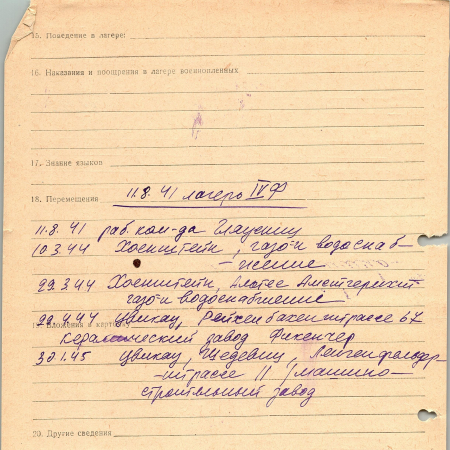 15. Поведение в лагере:
16. Наказания и поощрения в лагере военнопленных
17. Знание языков
18. Перемещения 11.8.41 лагерь IVФ
11.8.41 раб. ком-да Глауениц
10.3.44 Хоенштейн, газо-и водоснаб-
жение
29.3.44 Хоенштейн,
газо-и водоснабжение
29.4.44 Цвикау, Рейхенбахенштрассе 67
19. Вложения в карточку
Керамический завод Фикенчер
30.1.45 Цвикау, Шедевиц,
штрассе 11 /машино-
строительный завод
20. Другие сведения